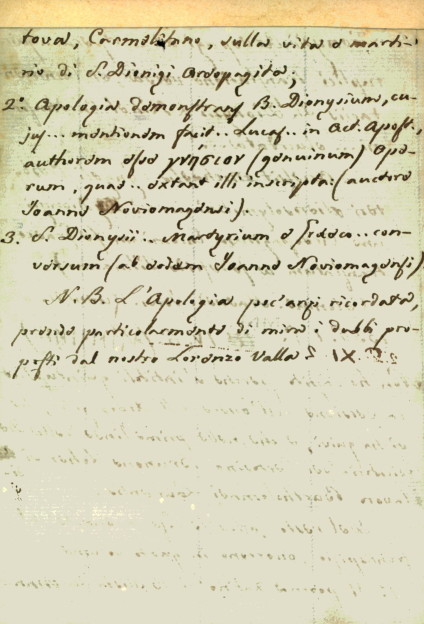 tova, Carmelitano, sulla vita e marti-
rio di S. Dionigi Areopagita;
2.° Apologia demonstrans B. Dionysium, cu-
jus.. mentionem facit.. Lucas.. in Act. Apost.,
authorem esse γνήσιον (genuinum) ope-
rum, quae.. extant illi inscripta: (auctore
Joanne Noviomagensi).
3. S. Dionysii.. Martyrium e graeco.. con-
versum (ab eodem Joanne Noviomagensi)
N.B. L'Apologia poc'anzi ricordata,
prende particolarmente di mira i dubbi pro-
posti dal nostro Lorenzo Valla